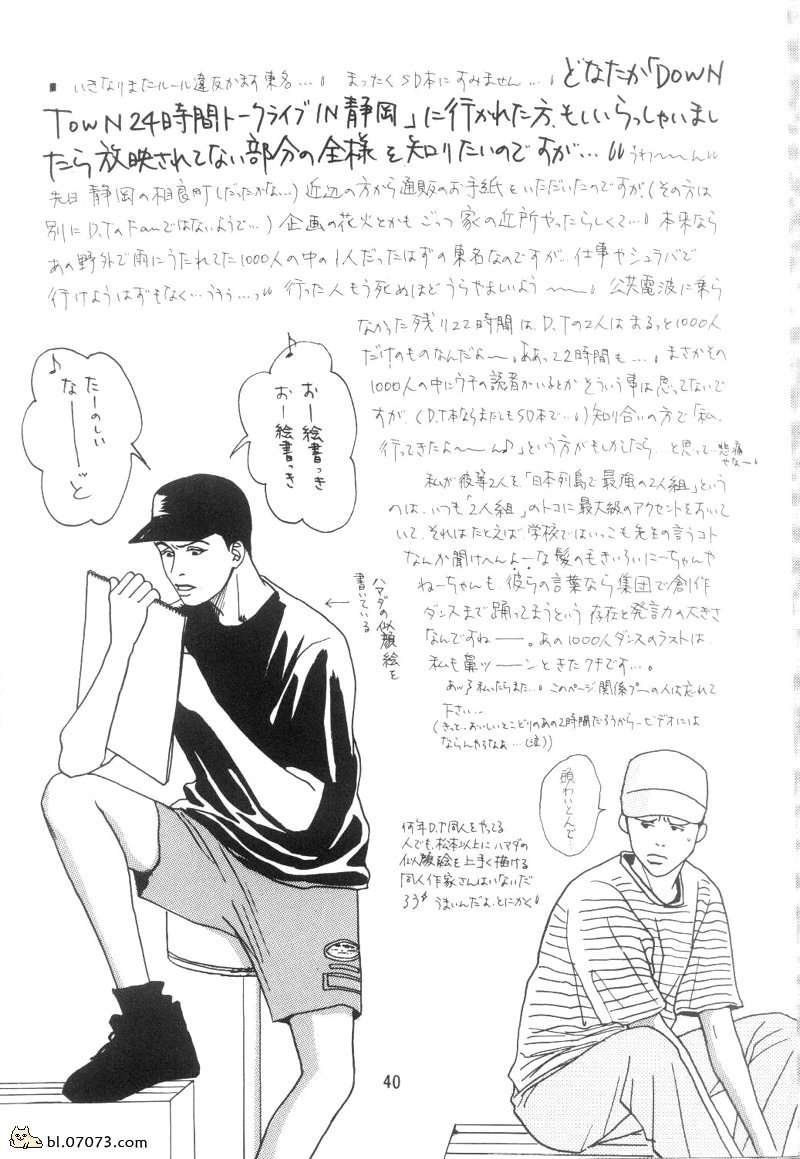 ■ いきなりまたルール違反かます東名…。 まったくSD本にすみません…。どなたか「DOWN
TOWN 24時間トークライブ IN 静岡」に行かれた方、もしいらっしゃいまし
たら放映されてない部分の全様を知りたいのですが…
先日静岡の相良町(だったかな…)近辺の方から通販のお手紙をいただいたのですが、(その方は
別にD.TのFanではないようで…)企画の花火とかもごっつ家の近所やったらしくて…。本来なら
あの野外で雨にうたれてた1000人の中の1人だったはずの東名なのですが…仕事やシュラバで
行けようはずもなく…うぅぅ…っ 行った人もう死ぬほどうらやましいよう〜〜。公共電波に乗ら
なかった残り22時間は、D.Tの2人はまるっと1000人
だけのものなんだよ〜。ああっ22時間も…。まさかその
1000人の中にウチの読者がいるとかそういう事は思ってないで
すが、(D.T本ならまだしもSD本で…。)知り合いの方で「私、
行ってきたよ〜〜ん♪」という方がもしかしたら…と思って…悲痛
やな〜。
私が彼等2人を「日本列島で最強の2人組」という
のは、いつも「2人組」のトコに最大級のアクセントをおいて
いて、それはたとえば、学校ではいっこも先生の言うコト
なんか聞けへんよーな髪の毛きいろいにーちゃんや
ねーちゃんも彼らの言葉なら集団で創作
ダンスまで踊ってまうという存在と発言力の大きさ
なんですねー。あの1000人ダンスのラストは、
私も鼻ツーンときたクチです…。
あッ私ったらまた…。このページ関係プーの人は忘れて
下さい…
(きっと、おいしいとこどりのあの2時間だろうから…ビデオには
ならんやろなぁ…(泣))
♪
たーのしい
なーーっと
♪
おー絵書っき
おー絵書っき
← ハマダの似顔絵を
書いている
頭わいとんで…
何年D.T同人をやってる
人でも、松本以上にハマダの
似顔絵を上手く描ける
同人作家さんはいないだ
ろう うまいんだよ、とにかく。
40
bl.07073.com